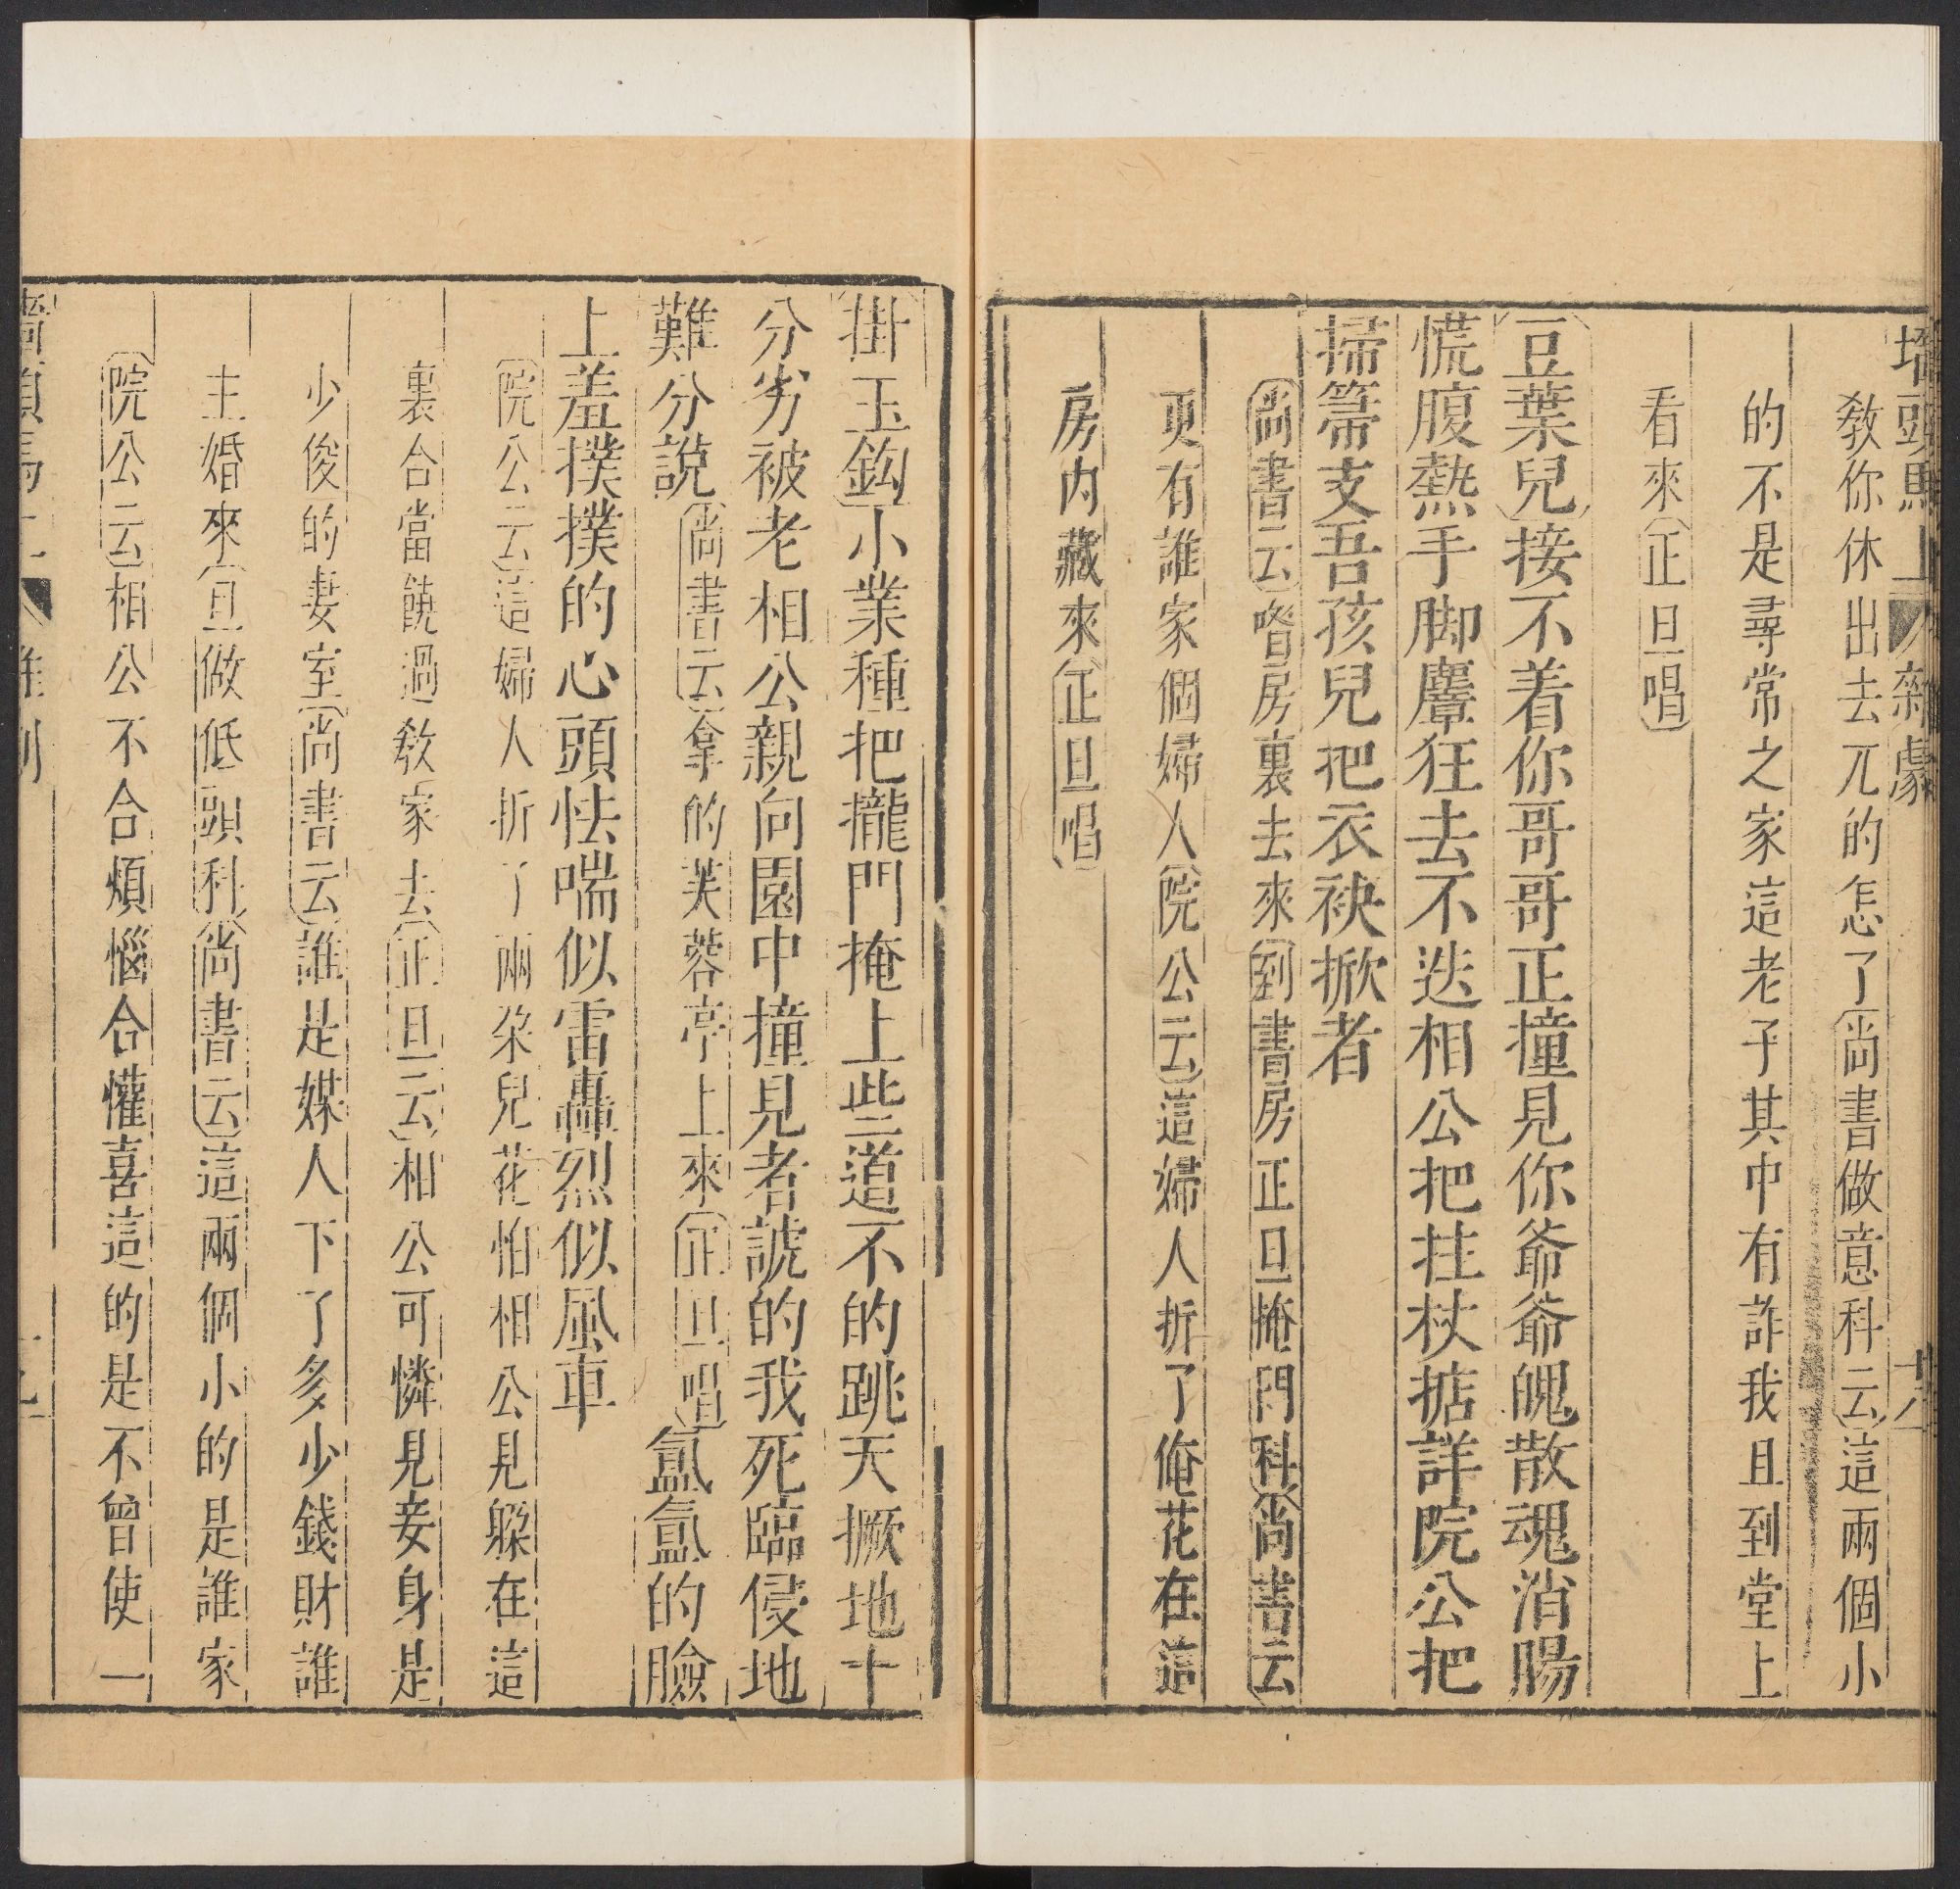 墻頭馬上 雜劇 十八
教你休出去兀的怎了尚書做意科云這兩個小
的不是尋常之家這老子其中有詐我且到堂上
看來正旦唱
豆葉兒接不着你哥哥正撞見你爺爺魄散魂消腸
慌腹熱手脚麞狂去不迭相公把拄杖掂詳院公把
掃箒支吾孩兒把衣袂掀者
尚書云喒房裏去來到書房正旦掩門科尚書云
更有誰家個婦人院公云這婦人折了俺花在這
房内藏來正旦唱
掛玉鈎小業種把攏門掩上些道不的跳天撅地十
分劣被老相公親向園中撞見者諕的我死臨侵地
難分說尚書云拿的芙蓉亭上來正旦唱氳氳的臉
上羞撲撲的心頭怯喘似雷轟烈似風車
院公云這婦人折了兩朶兒花怕相公見躲在這
裏合當饒過敎家去正旦云相公可憐見妾身是
少俊的妻室尚書云誰是媒人下了多少錢財誰
主婚來旦做低頭科尚書云這兩個小的是誰家
院公云相公不合煩惱合懽喜這的是不曾使一